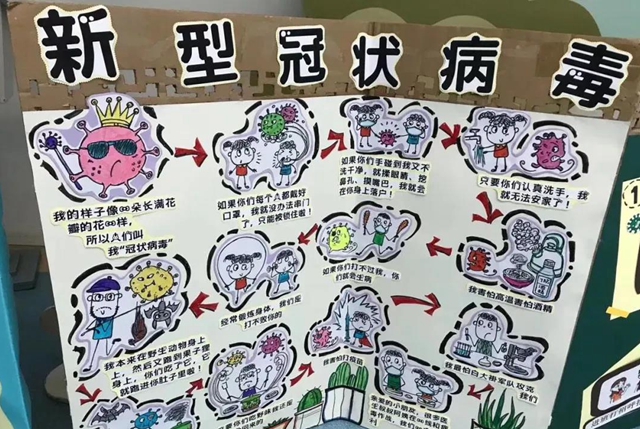 新型冠状病毒
我的样子像∞朵长满花
瓣的花∞样,
所以人们叫
我“冠状病毒”
如果你们每个人都戴好
口罩,我就没办法串门
了,只能被锁住啦!
如果你们手碰到我又不
洗干净,就揉眼睛、挖
鼻孔、摸嘴巴,我就会
在你身上落户!
只要你们认真洗手,我
就无法安家了!
我害怕高温害怕酒精
如果你们打不过我,你
们就会生病
经常锻炼身体,我们是
打不败你的
我本来在野生动物身上
,然后又跑到果子狸
身上,你们吃了它,它
就跑进你肚子里啦!
我害怕打疫苗
我最怕白大褂军队攻克
我们
亲爱的小朋友,